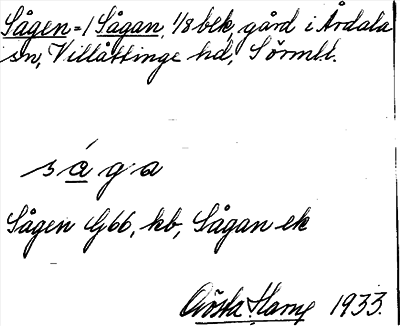 Sågen=/Sågan, 1/8 blk, gård i Årdala
sn, Villåttinge hd, Sörml.
såga
Sågen G66, kb, Sågan ek
Gösta 1933.